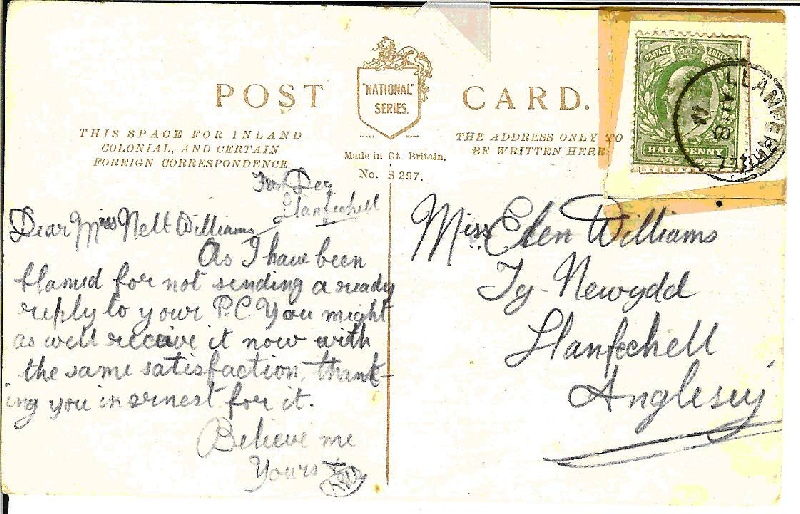 POST CARD.
"NATIONAL"
SERIES.
THIS SPACE FOR INLAND
COLONIAL, AND CERTAIN
FOREIGN CORRESPONDENCE
THE ADDRESS ONLY TO
BE WRITTEN HERE
Made in Gt. Britain.
No. S 297.
POSTAGE
HALFPENNY
Llanfechell
Dear Miss Nell Williams
As I have been
blamed for not sending a ready
reply to your P.C You might
as well receive it now with
the same satisfaction, thank-
ing you in ernest for it.
Believe me
Yours
Miss Elen Williams
Ty-Newydd
Llanfechell
Anglesey